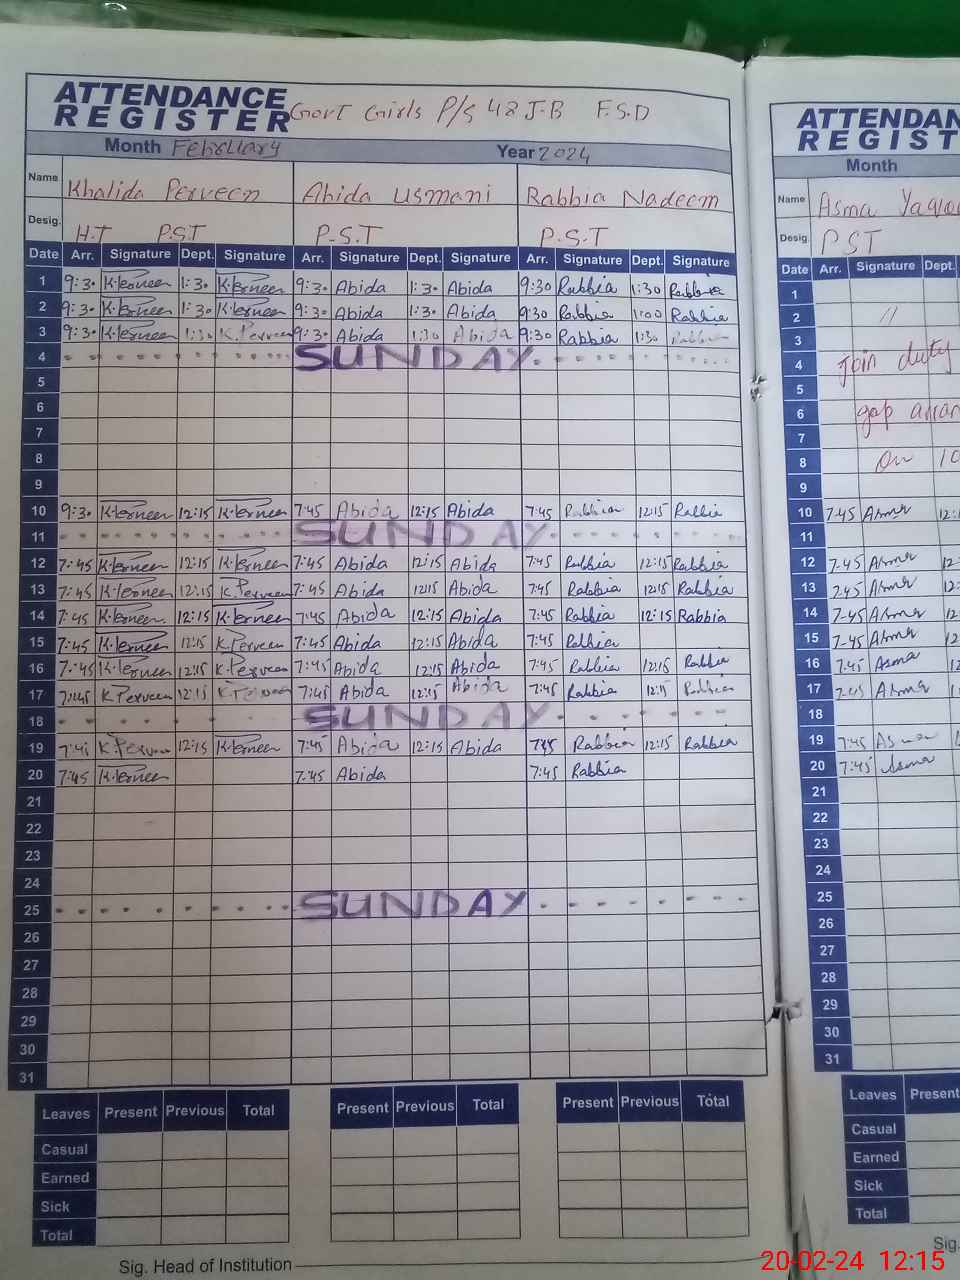 ATTENDANCE REGISTER Govt Girls P/S 48 J-B F.S.D
Month February Year 2024
Name Khalida Perveen Abida Usmani Rabbia Nadeem
Desig. H.T P.S.T P-S.T P.S.T
Date Arr. Signature Dept. Signature Arr. Signature Dept. Signature Arr. Signature Dept. Signature
1 9:30 K.Perveen 1:30 K.Perveen 9:30 Abida 1:30 Abida 9:30 Rabbia 1:30 Rabbia
2 9:30 K.Perveen 1:30 K.Perveen 9:30 Abida 1:30 Abida 9:30 Rabbia 1:00 Rabbia
3 9:30 K.Perveen 1:30 K.Perveen 9:30 Abida 1:30 Abida 9:30 Rabbia 1:30 Rabbia
4 SUNDAY
5
6
7
8
9
10 9:30 K.Perveen 12:15 K.Perveen 7:45 Abida 12:15 Abida 7:45 Rabbia 12:15 Rabbia
11 SUNDAY
12 7:45 K.Perveen 12:15 K.Perveen 7:45 Abida 12:15 Abida 7:45 Rabbia 12:15 Rabbia
13 7:45 K.Perveen 12:15 K.Perveen 7:45 Abida 12:15 Abida 7:45 Rabbia 12:15 Rabbia
14 7:45 K.Perveen 12:15 K.Perveen 7:45 Abida 12:15 Abida 7:45 Rabbia 12:15 Rabbia
15 7:45 K.Perveen 12:15 K.Perveen 7:45 Abida 12:15 Abida 7:45 Rabbia
16 7:45 K.Perveen 12:15 K.Perveen 7:45 Abida 12:15 Abida 7:45 Rabbia 12:15 Rabbia
17 7:45 K.Perveen 12:15 K.Perveen 7:45 Abida 12:15 Abida 7:45 Rabbia 12:15 Rabbia
18 SUNDAY
19 7:45 K.Perveen 12:15 K.Perveen 7:45 Abida 12:15 Abida 7:45 Rabbia 12:15 Rabbia
20 7:45 K.Perveen 7:45 Abida 7:45 Rabbia
21
22
23
24
25 SUNDAY
26
27
28
29
30
31
Leaves Present Previous Total Present Previous Total Present Previous Total
Casual
Earned
Sick
Total
Sig. Head of Institution
ATTENDAN
REGIST
Month
Name Asma
Desig. PST
Date Arr. Signature Dept.
1
2 "
3
4 Join duty
5
6 gap
7
8 On 10
9
10 7-45 Asma 12:
11
12 7:45 Asma 12
13 7:45 Asma 12
14 7-45 Asma 12
15 7-45 Asma
16 7:45 Asma 12
17 7-45 Asma
18
19 7:45 Asma
20 7:45 Asma
21
22
23
24
25
26
27
28
29
30
31
Leaves Present
Casual
Earned
Sick
Total
Sig.
20-02-24 12:15